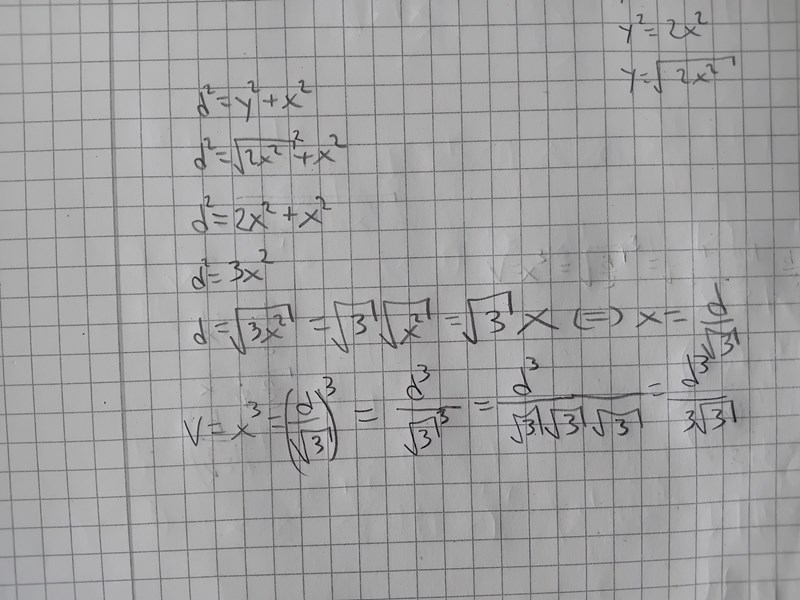 y² = 2x²
y = √2x²
d² = y² + x²
d² = √2x²² + x²
d² = 2x² + x²
d² = 3x²
d = √3x² = √3 √x² = √3 x (=) x = d/√3
V = x³ = (d/√3)³ = d³/√3³ = d³/√3√3√3 = d³/3√3